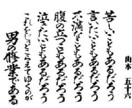 山本 五十六
苦しいこともあるだろう
言いたいこともあるだろう
不満なこともあるだろう
腹の立つこともあるだろう
泣きたいこともあるだろう
これらをじっとこらえてゆくのが
男の修業である